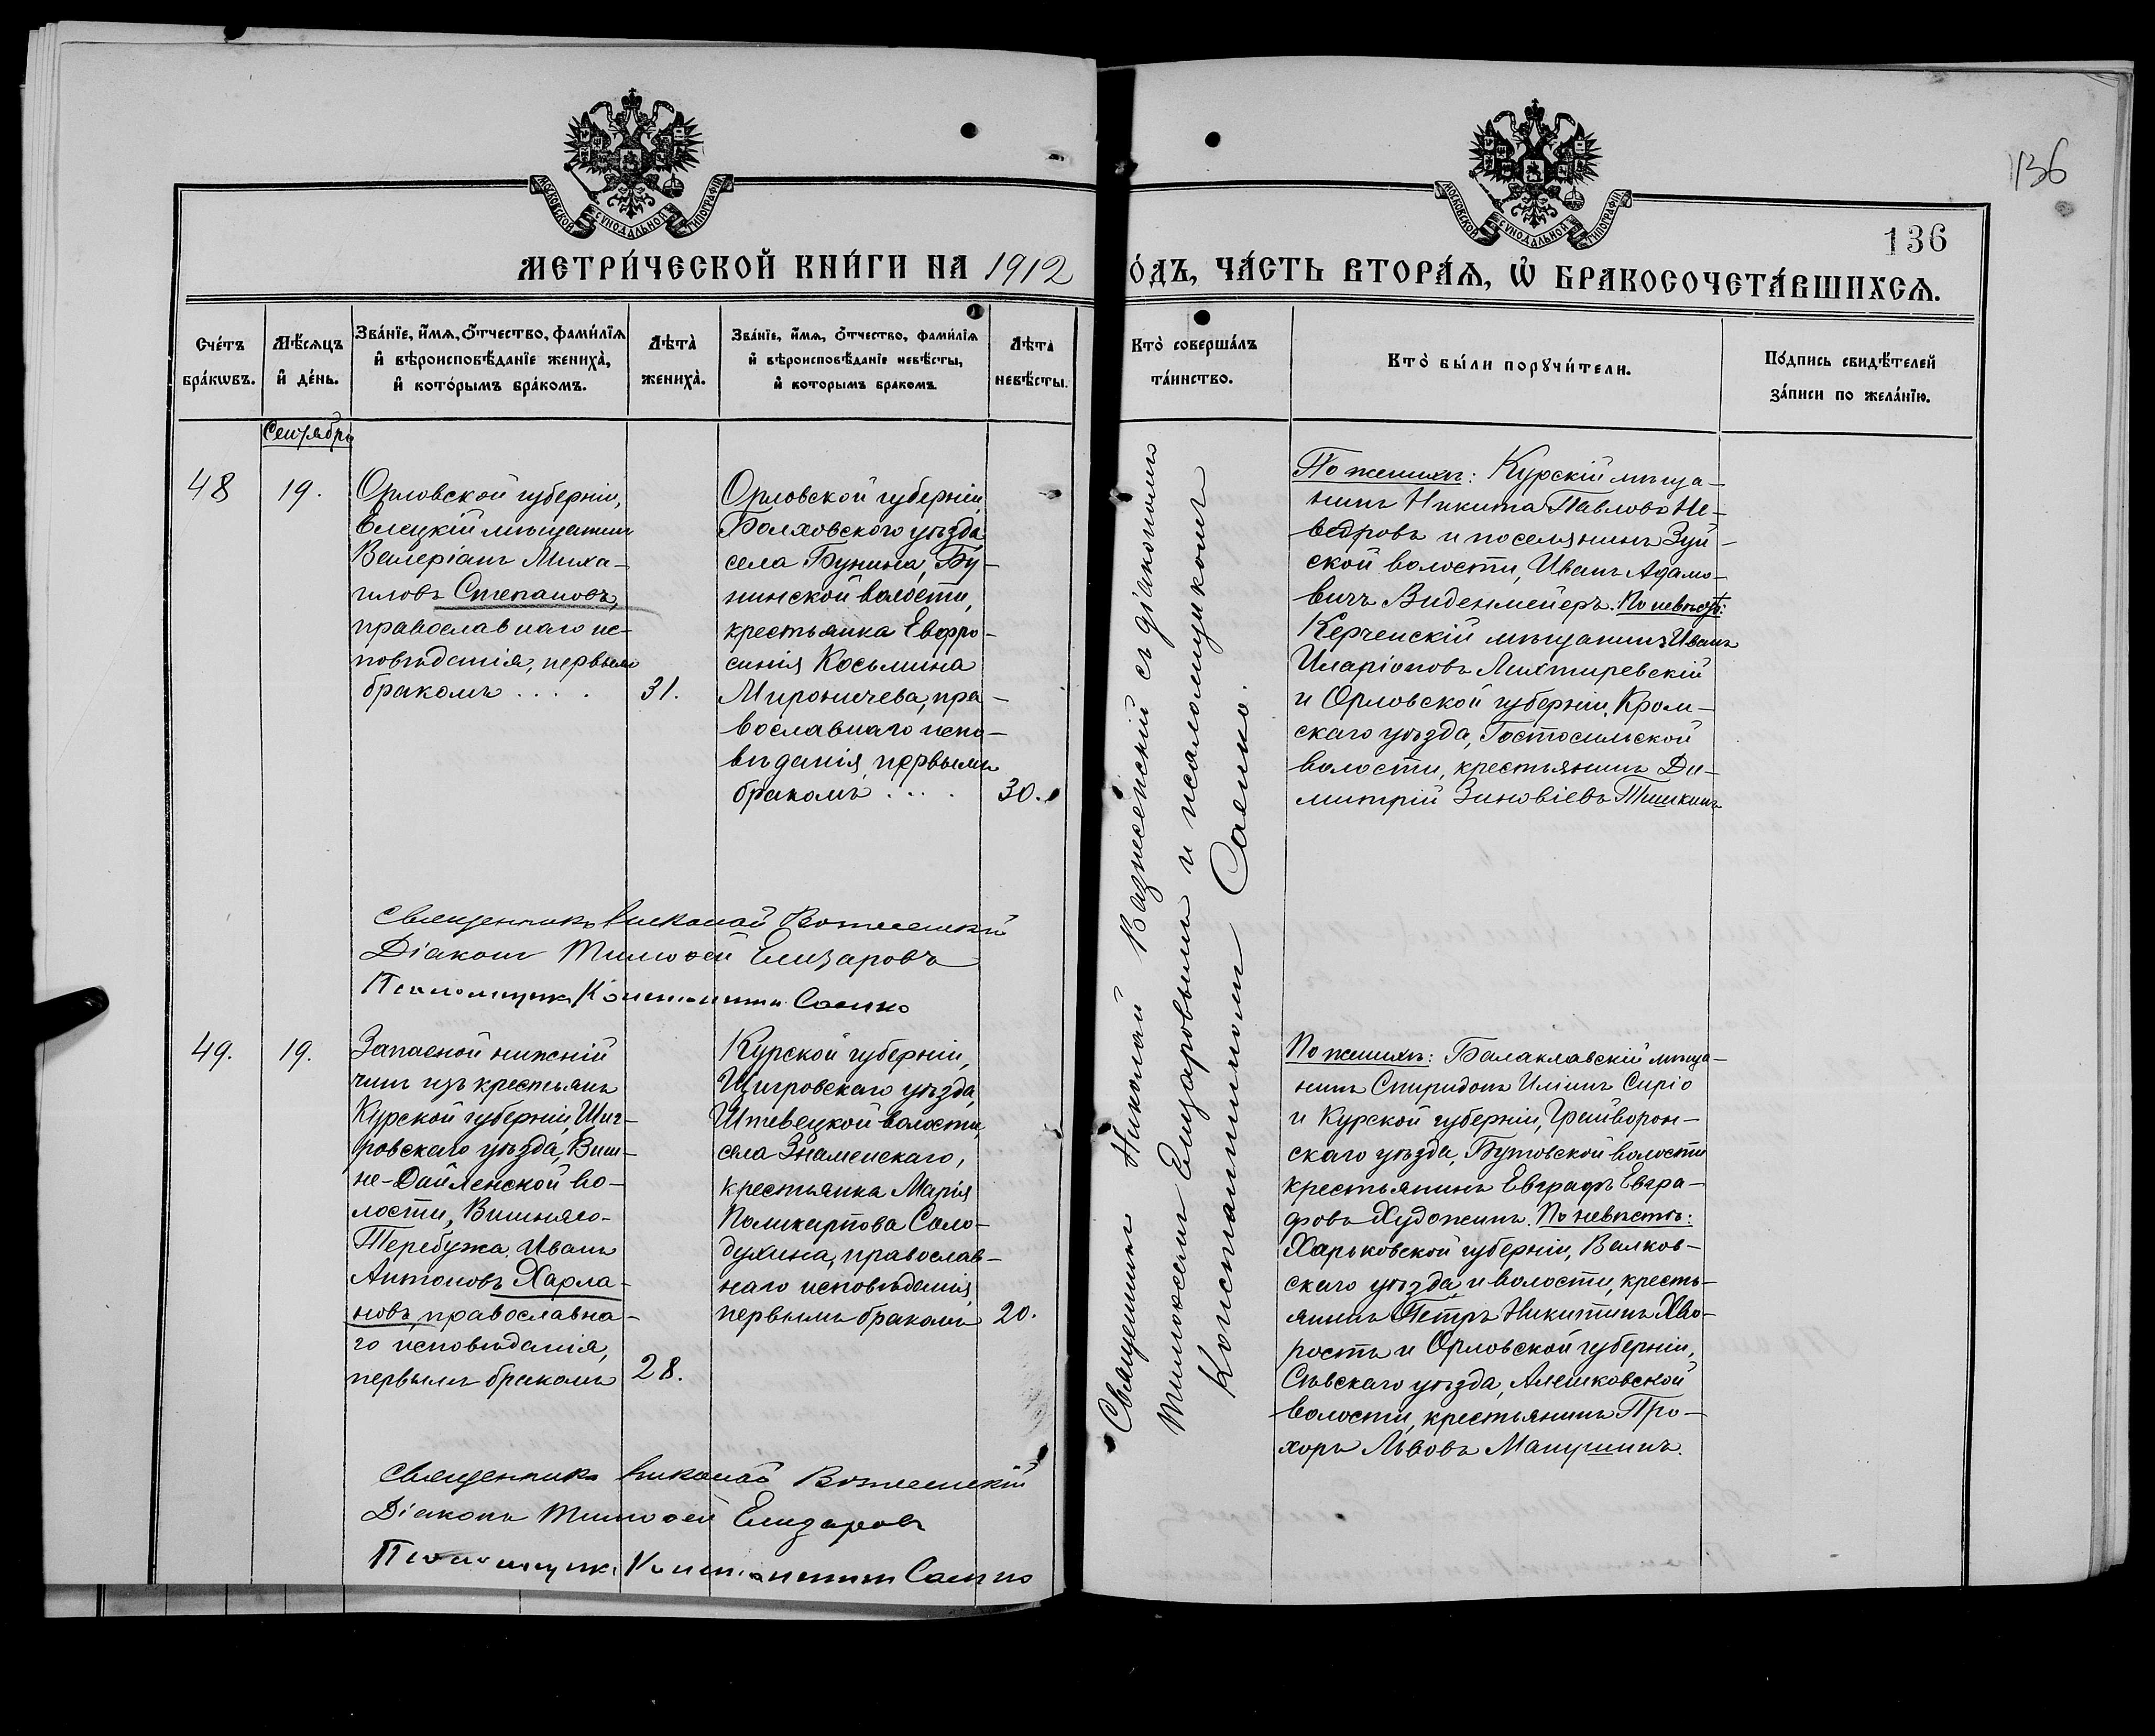 136
136
МОСКОВСКОЙ СУНОДАЛЬНОЙ ТИПОГРАФІИ
МОСКОВСКОЙ СУНОДАЛЬНОЙ ТИПОГРАФІИ
МЕТРИ́ЧЕСКОЙ КНИ́ГИ НА 1912
О́ДЪ, ЧА́СТЬ ВТОРА́Я, Ѡ҆ БРАКОСОЧЕТА́ВШИХСЯ.
Сче́тъ
бра́кѡвъ.
Мѣ́сяцъ
и҆ де́нь.
Зва́нїе, и҆́мя, ѻ҆́тчество, фами́лїя
и҆ вѣроисповѣ́данїе жениха̀,
и҆ кото́рымъ бра́комъ.
Лѣ́та̀
жениха̀.
Зва́нїе, и҆́мя, ѻ҆́тчество, фами́лїя
и҆ вѣроисповѣ́данїе невѣ́сты,
и҆ которымъ бракомъ.
Лѣ́та
невѣ́сты.
Кто̀ соверша́лъ
та́инство.
Кто̀ бы́ли порꙋчи́тели.
По́дпись свидѣ́телей
за́писи по жела́нїю.
Сентябрь
48
19.
Орловской губерніи,
Елецкій мѣщанинъ
Валеріанъ Миха-
иловъ Степановъ,
православнаго ис-
повѣданія, первымъ
бракомъ . . . .
31.
Орловской губерніи,
Болховского уѣзда
села Бунина, Бу-
нинской волости,
крестьянка Евфро-
синія Косьмина
Мироничева, пра-
вославнаго испо-
вѣданія, первымъ
бракомъ . . . .
30.
Священникъ Николай Вознесенскій съ діакономъ
Тимоѳеемъ Елизаровымъ и псаломщикомъ
Константиномъ Саенко.
По женихѣ: Курскій мѣща-
нинъ Никита Павловъ Не-
ведровъ и поселянинъ Зуй-
ской волости, Иванъ Адамо-
вичъ Виденмейеръ. По невѣстѣ:
Керченскій мѣщанинъ Иванъ
Иларіоновъ Ляхтиревскій
и Орловской губерніи, Кром-
скаго уѣзда, Гостомльской
волости, крестьянинъ Ди-
митрій Зиновіевъ Тишкинъ
Священникъ Николай Вознесенскій
Діаконъ Тимоѳей Елизаровъ
Псаломщикъ Константинъ Саенко
49.
19.
Запасной нижній
чинъ изъ крестьянъ
Курской губерніи, Щиг-
ровскаго уѣзда, Выш-
не-Дайменской во-
лости, Вышняго-
Теребужа Иванъ
Антоновъ Харла-
новъ, православна-
го исповѣданія,
первымъ бракомъ
28.
Курской губерніи,
Щигровскаго уѣзда,
волости,
села Знаменскаго,
крестьянка Марія
Поликарпова Соло-
духина, православ-
наго исповѣданія
первымъ бракомъ
20.
По женихѣ: Балаклавскій мѣща-
нинъ Спиридонъ Иліинъ Сиріо
и Курской губерніи, Грайворон-
скаго уѣзда, Бутовской волости
крестьянинъ Евграфъ Евгра-
фовъ Художинъ. По невѣстѣ:
Харьковской губерніи, Валков-
скаго уѣзда и волости, кресть-
янинъ Петръ Никитинъ Хво-
ростъ и Орловской губерніи,
Сѣвскаго уѣзда, Алешковской
волости, крестьянинъ Про-
хоръ Львовъ Манушинъ.
Священникъ Николай Вознесенскій
Діаконъ Тимоѳей Елизаровъ
Псаломщикъ Константинъ Саенко